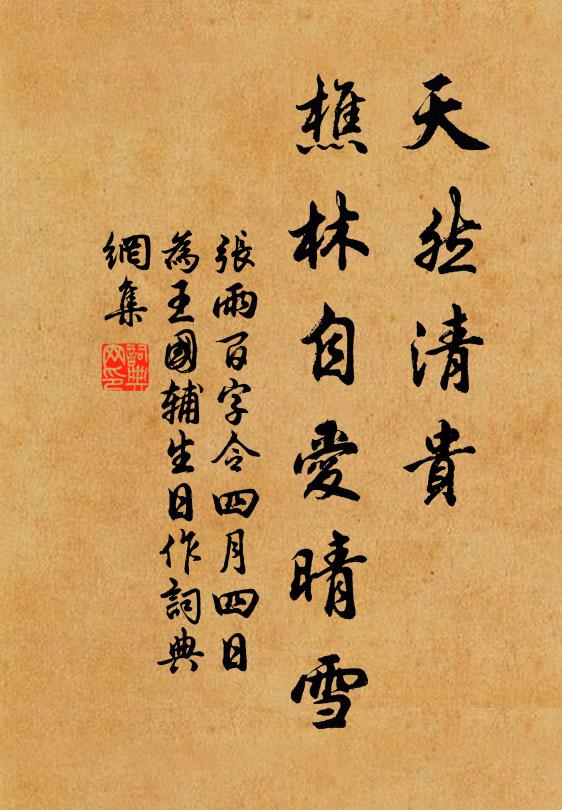 天然清貴
樵林自愛晴雪
張雨百字令四月四日
為王國輔生日作詞典
網集
詞典
网印